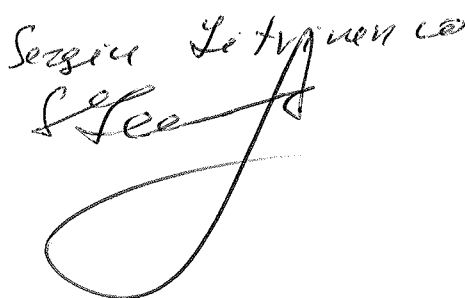 Sergiu Litvinenco